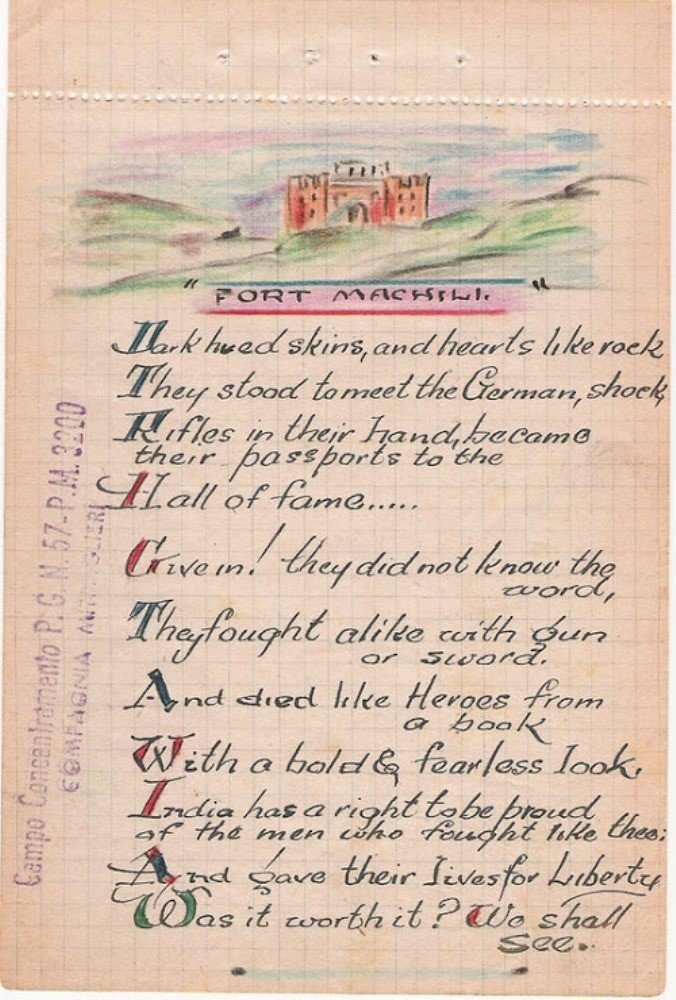 "FORT MACHILI."
Dark hued skins, and hearts like rock
They stood to meet the German, shock,
Rifles in their hand, became
their passports to the
Hall of fame.....
Give in! they did not know the
word,
They fought alike with gun
or sword.
And died like Heroes from
a book
With a bold & fearless look.
India has a right to be proud
of the men who fought like thee:
And gave their lives for Liberty
Was it worth it? We shall
see..
Campo Concentramento P.G.N. 57-P.M. 3200
COMPAGNIA